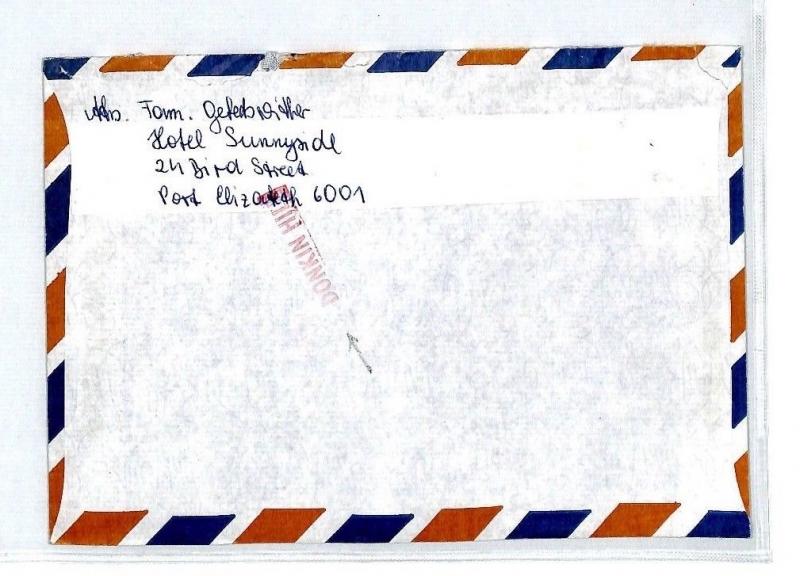 Abs. Fam.
Hotel Sunnyside
24 Bird Street
Port Elizabeth 6001
DONKIN HILL